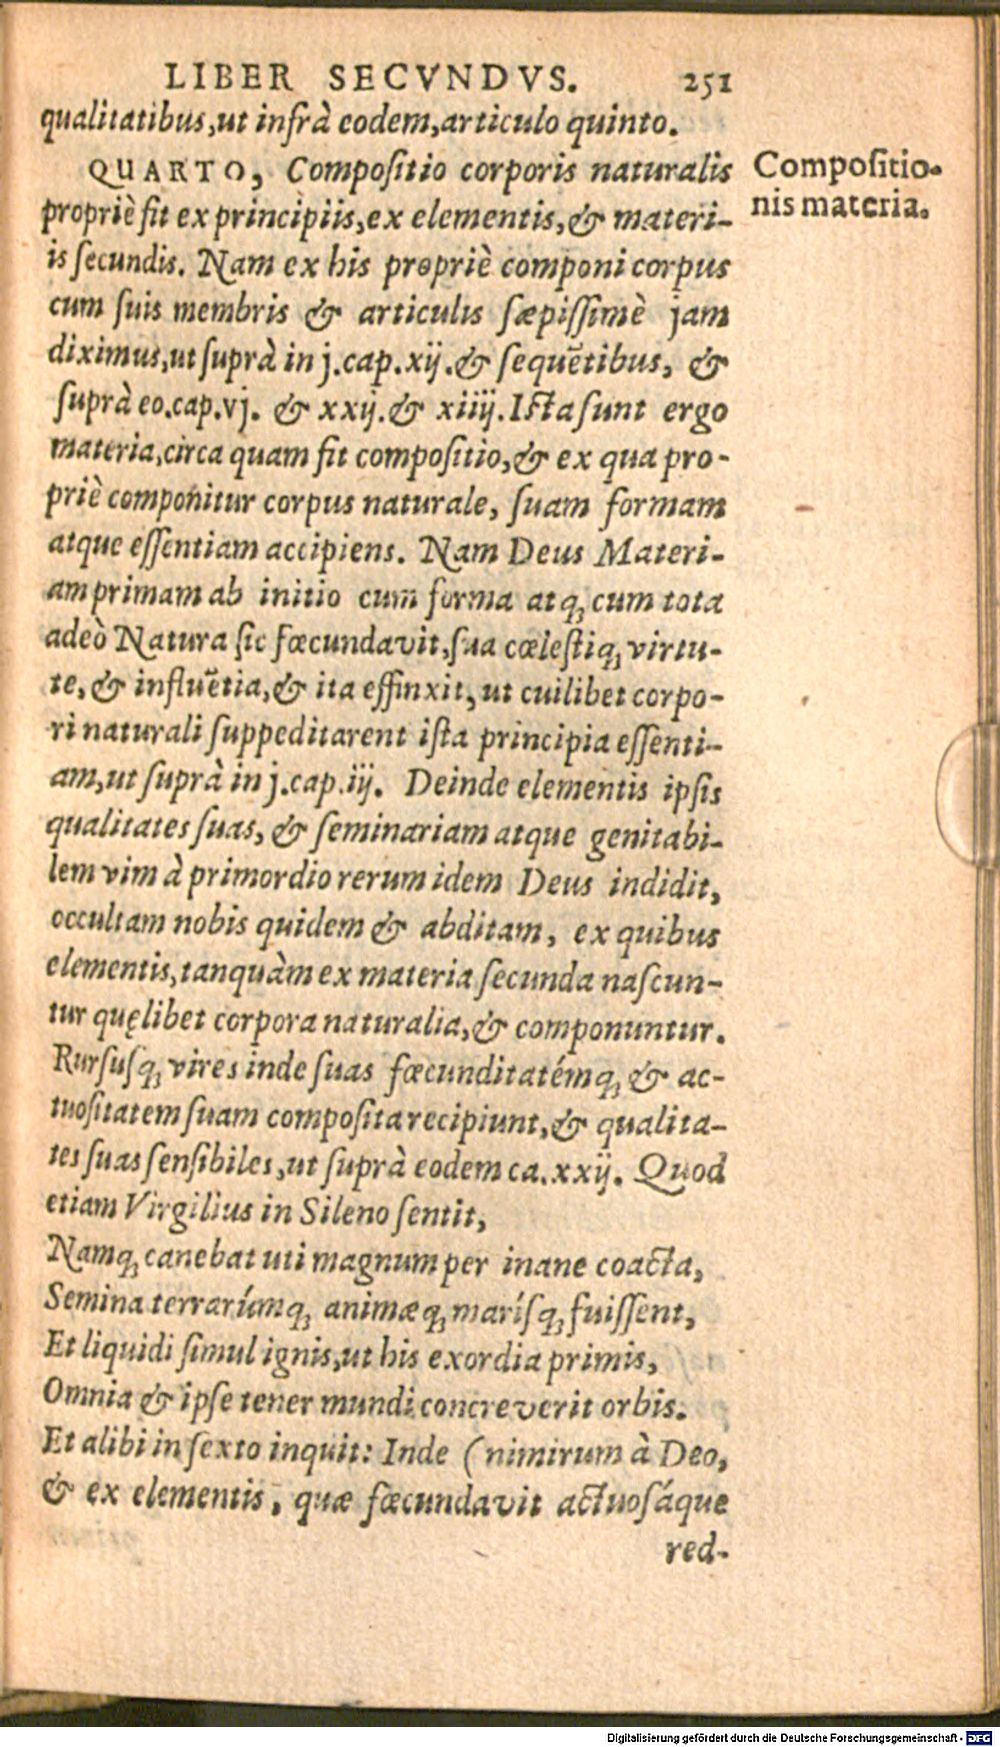 LIBER SECVNDVS. 251
qualitatibus, ut infrà eodem, articulo quinto.
QUARTO, Compoſitio corporis naturalis
propriè fit ex principiis, ex elementis, & materi-
is ſecundis. Nam ex his propriè componi corpus
cum ſuis membris & articulis ſæpiſſimè jam
diximus, ut ſuprà in j. cap. xij. & ſequẽtibus, &
ſuprà eo. cap. vj. & xxij. & xiiij. Iſta ſunt ergo
materia, circa quam fit compoſitio, & ex qua pro-
priè componitur corpus naturale, ſuam formam
atque eſſentiam accipiens. Nam Deus Materi-
am primam ab initio cum forma atq; cum tota
adeò Natura ſic fœcundavit, ſua cœleſtiq; virtu-
te, & influẽtia, & ita effinxit, ut cuilibet corpo-
ri naturali ſuppeditarent iſta principia eſſenti-
am, ut ſuprà in j. cap. iij. Deinde elementis ipſis
qualitates ſuas, & ſeminariam atque genitabi-
lem vim à primordio rerum idem Deus indidit,
occultam nobis quidem & abditam, ex quibus
elementis, tanquàm ex materia ſecunda naſcun-
tur quęlibet corpora naturalia, & componuntur.
Rurſuſq; vires inde ſuas fœcunditatémq; & ac-
tuoſitatem ſuam compoſita recipiunt, & qualita-
tes ſuas ſenſibiles, ut ſuprà eodem ca. xxij. Quod
etiam Virgilius in Sileno ſentit,
Namq; canebat uti magnum per inane coacta,
Semina terrarúmq; animæq; maríſq; fuiſſent,
Et liquidi ſimul ignis, ut his exordia primis,
Omnia & ipſe tener mundi concreverit orbis.
Et alibi in ſexto inquit: Inde (nimirum à Deo,
& ex elementis, quæ fœcundavit actuoſáque
red-
Compoſitio-
nis materia.
Digitalisierung gefördert durch die Deutsche Forschungsgemeinschaft - DFG